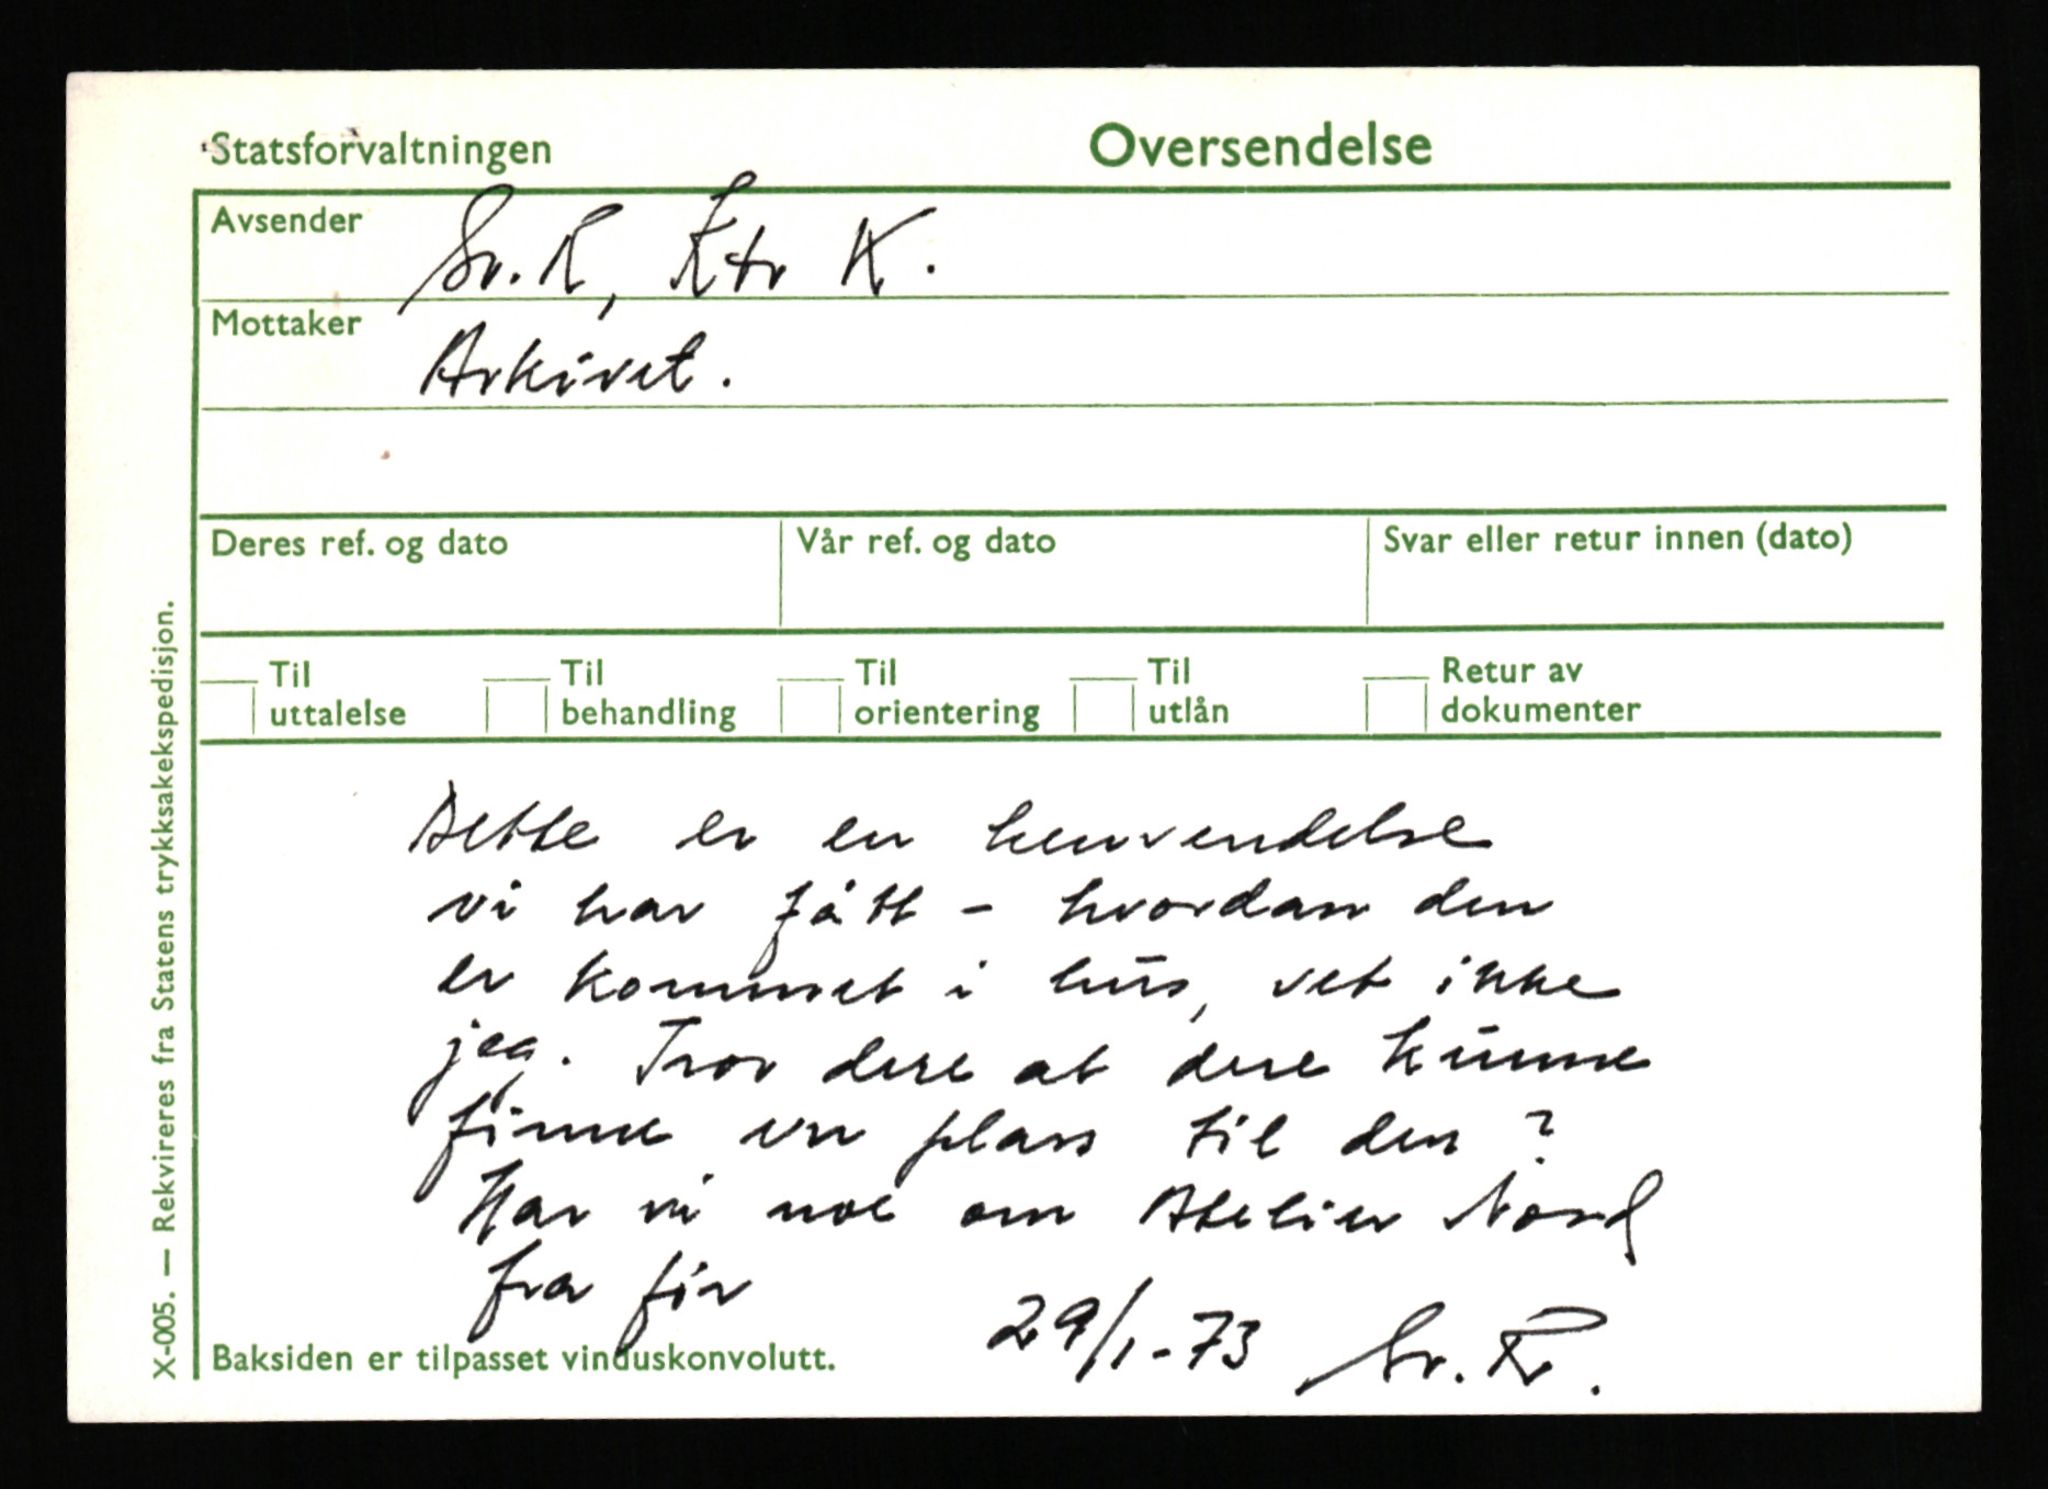 Statsforvaltningen
Oversendelse
Avsender Sv. R, Ktr K.
Mottaker
Arkivet.
Deres ref. og dato
Vår ref. og dato
Svar eller retur innen (dato)
Til uttalelse
Til behandling
Til orientering
Til utlån
Retur av dokumenter
Dette er en henvendelse
vi har fått - hvordan den
er kommet i hus, vet ikke
jeg. Tror dere at dere kunne
finne en plass til den?
Har vi noe om Atelier Nord
fra før
29/1-73 Sv. R.
Baksiden er tilpasset vinduskonvolutt.
X-005. — Rekvireres fra Statens trykksakekspedisjon.